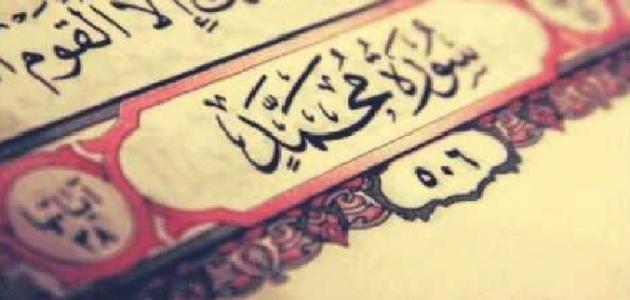 إِلَّا الْقَوْمُ
سُورَةُ مُحَمَّدٍ
٥٠٦
٣٨